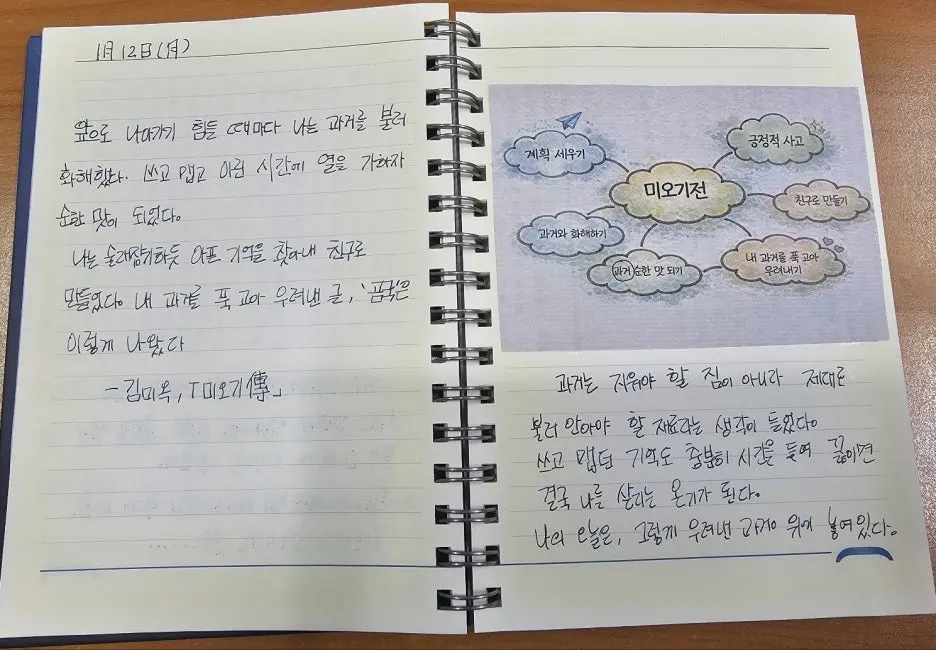 1月 12日(月)
앞으로 나아가기 힘들 때마다 나는 과거를 불러
화해했다. 쓰고 맵고 아린 시간에 열을 가하자
순한 맛이 되었다.
나는 술래잡기하듯 아픈 기억을 찾아내 친구로
만들었다. 내 과거를 푹 고아 우려낸 글, '곰국'은
이렇게 나왔다
- 김미옥, 「미오기傳」
계획 세우기
긍정적 사고
미오기전
친구로 만들기
과거와 화해하기
과거 순한 맛 되기
내 과거를 푹 고아
우려내기
과거는 지워야 할 짐이 아니라 제대로
불러 안아야 할 재료라는 생각이 들었다.
쓰고 맵던 기억도 충분히 시간을 들여 끓이면
결국 나를 살리는 온기가 된다.
나의 오늘은, 그렇게 우려낸 과거 위에 놓여있다.